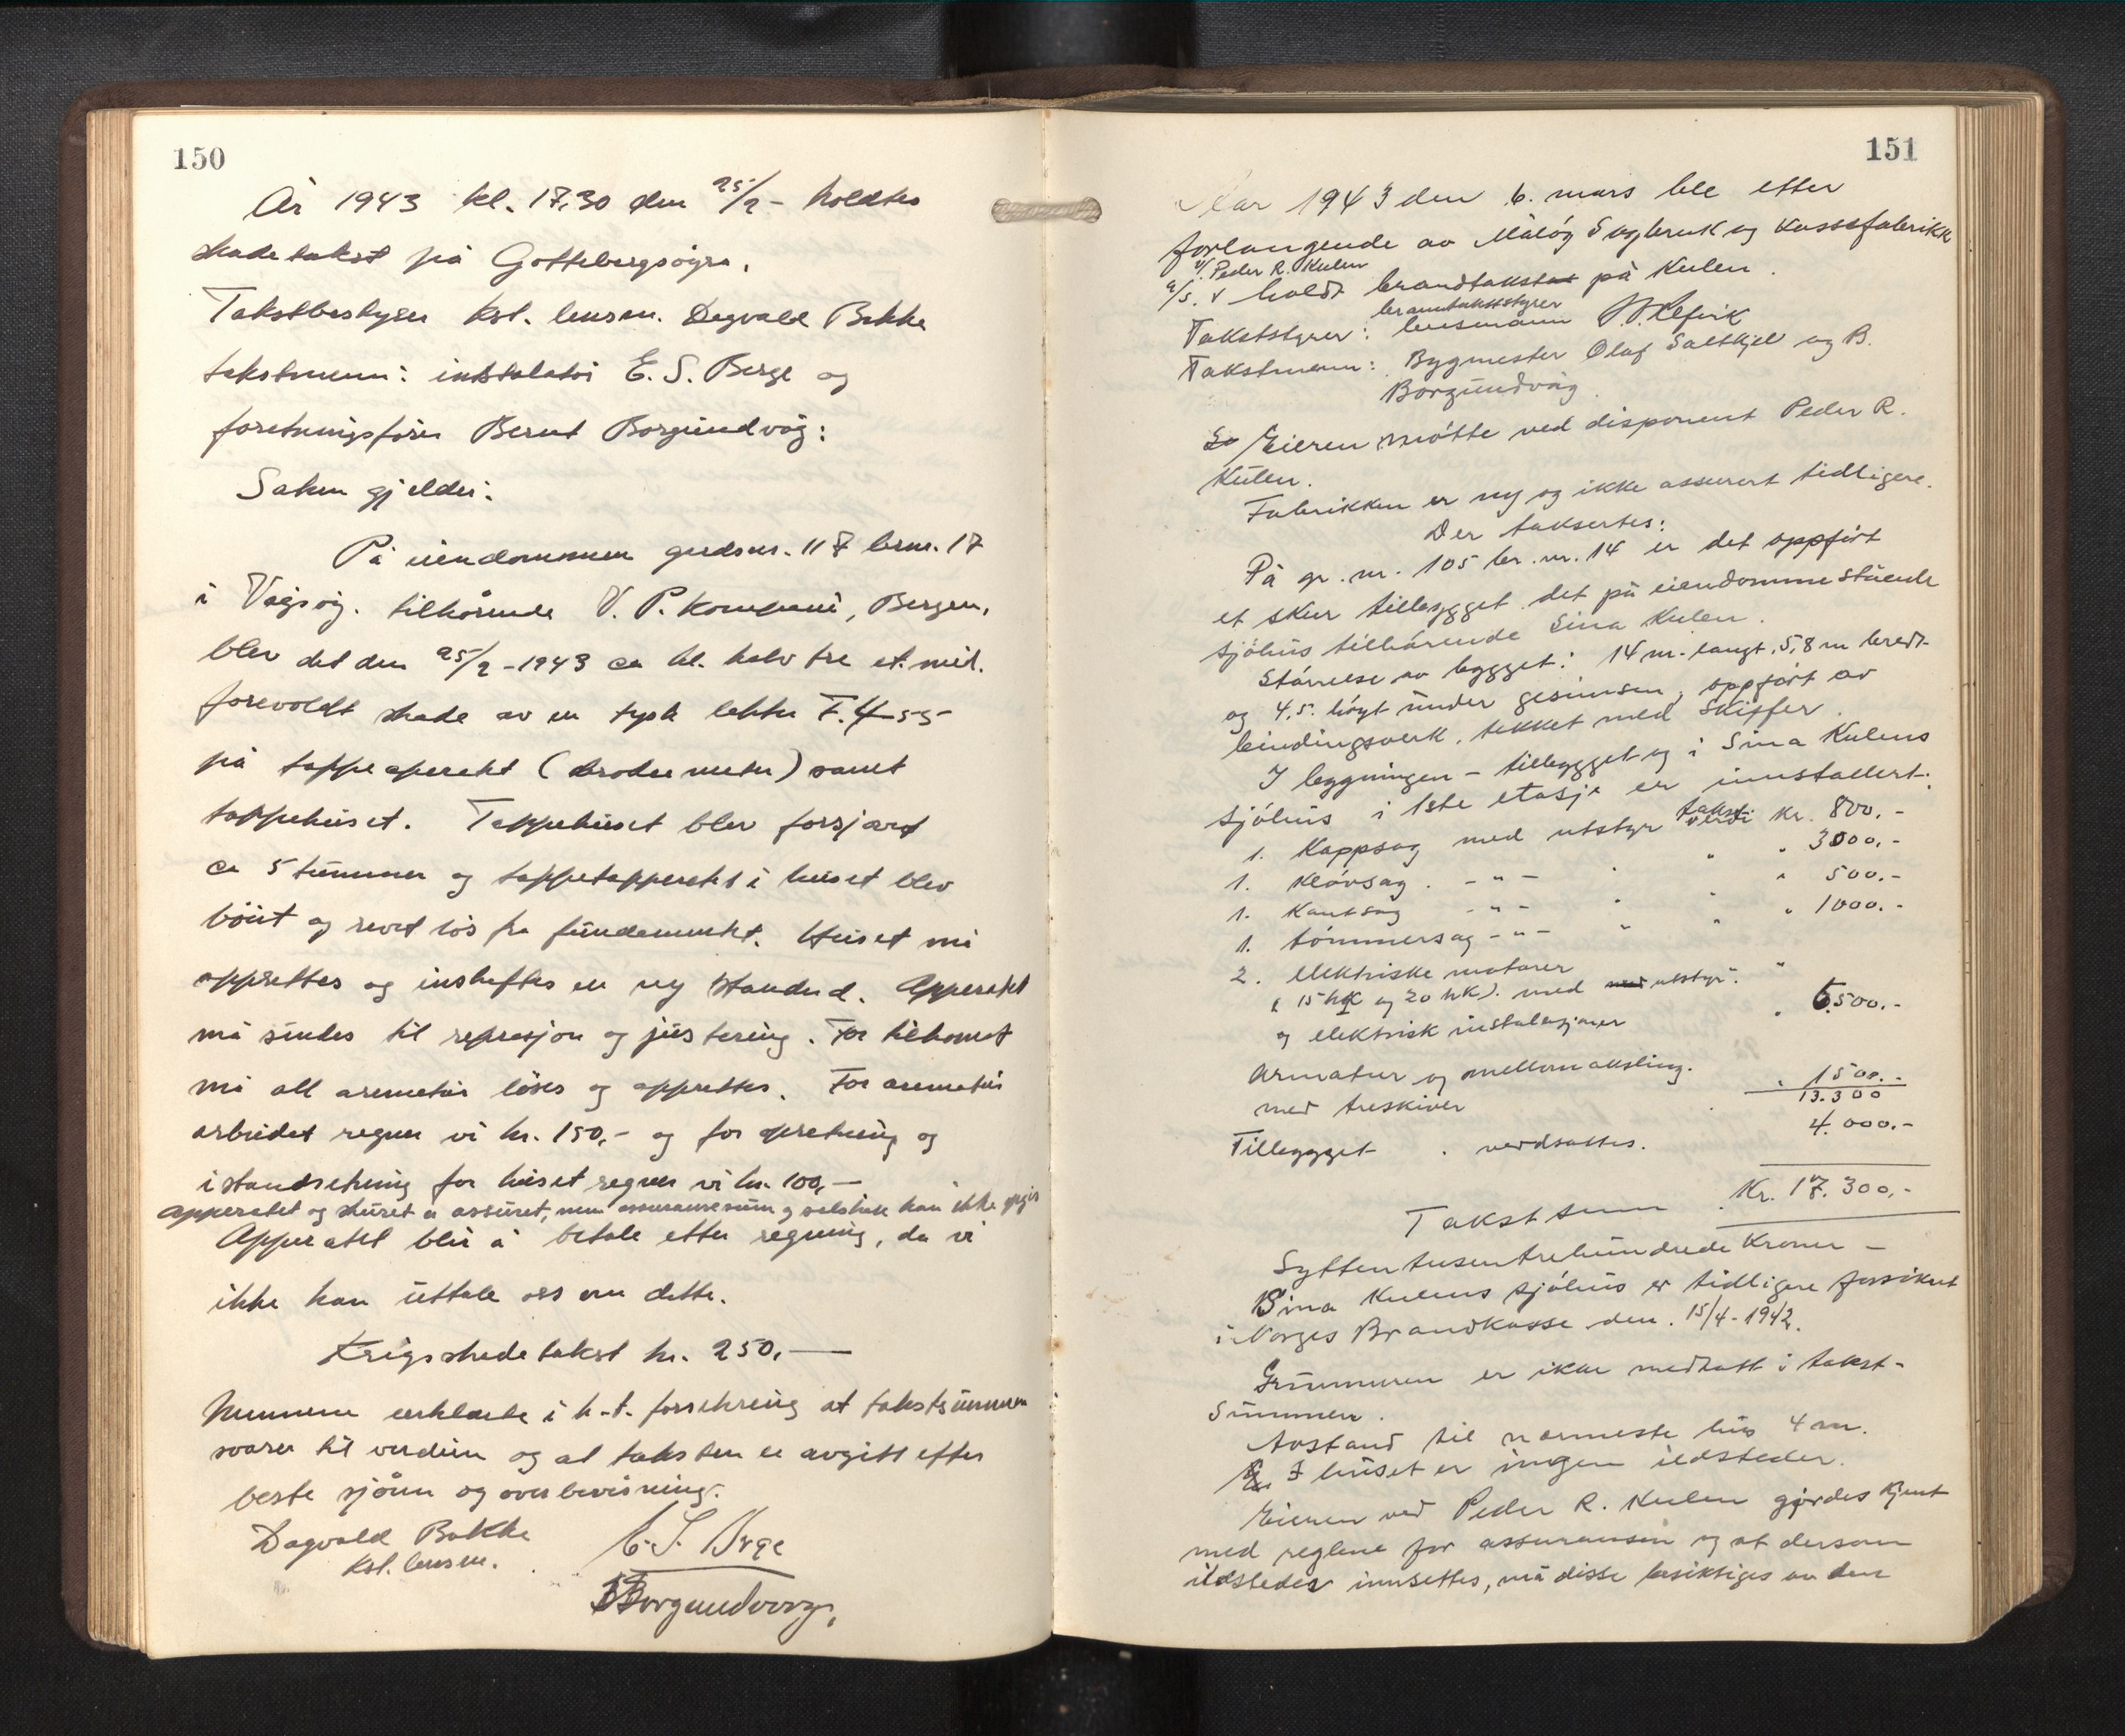 150
År 1943 kl. 17,30 den 25/2 - holdtes
skadetakst på Gottebergsøyra.
Takstbestyrer Kst. lensm. Dagvald Bakke
takstmenn: installatør E. S. Berge og
foretningsfører Bernt Borgundvåg:
Saken gjelder:
På eiendommen gardsnr. 117 brnr. 17
i Vågsøy. tilhørende V. P. Kompani, Bergen,
blev det den 25/2 - 1943 ca kl. halv tre et. mid.
forevoldt skade av en tysk lekter F. 455
på tappeaperatet ( ) samt
tappehuset. Tappehuset blev forsjøvet
ca 5 tommer og tappetapperatet i huset blev
bøiet og revet løs fra fundementet. Huset må
opprettes og inskiftes en ny stender. Apperatet
må sendes til reprasjon og justering. For tilkomst
må all arematur løses og opprettes. For arematur
arbeidet regner vi kr. 150,- og for opretning og
istandsetning for huset regner vi kr. 100,—
Apperatet og skuret er assuret, men assuransesum og selskap kan ikke opgis
Apperatet blir å betale etter regning, da vi
ikke kan uttale oss om dette.
Krigsskadetakst kr. 250,—
Mennene erklærte i h.t. forsikring at takstsummen
svarer til verdien og at taksten er avgitt efter
beste sjønn og overbevisning.
Dagvald Bakke
kst. lensm.
E. S. Berge
B Borgundvaag,
151
Aar 1943 den 6. mars ble etter
forlangende av Måløy Sagbruk og Kassefabrikk
v/ Peder R. Kulen
A/S. v holdt brandtakst på Kulen.
branntakststyrer
Takststyrer: lensmann Refvik
Takstmenn: Bygmester Olaf Saltkjel og B.
Borgundvåg.
Eieren møtte ved disponent Peder R.
Kulen.
Fabrikken er ny og ikke assurert tidligere.
Der taksertes:
På gr. nr. 105 br. nr. 14 er det oppført
et skur tilbygget det på eiendomme stående
sjøhus tilhørende Sina Kulen.
Størrelse av bygget: 14 m. langt, 5,8 m bredt
og 4,5. høyt under gesimsen, oppført av
bindingsverk, tekket med Skiffer.
I bygningen - tilbygget og i Sina Kulens
sjøhus i 1ste etasje er innstallert:
1. Kappsag med utstyr takst verdi kr. 800.-
1. Kløvsag. - " - " " " 3000.-
1. Kantsag - " - " " " 500.-
1. tømmersag - " - " " " 1000.-
2. elektriske motorer "
( 15 hK og 20 hK). med utstyr.
og elektrisk instalasjoner " 6500.-
Armatur og mellomaksling.
med treskiver " 1500.-
13.300
Tilbygget verdsattes. 4.000.-
Takstsum Kr. 17.300,-
Syttentusentrehundrede Kroner -
Sina Kulens sjøhus er tidligere forsikret
i Norges Brandkasse den. 15/4 - 1942.
Grunmuren er ikke medtatt i takst-
summen.
Avstand til nærmeste hus 4 m.
I huset er ingen ildsteder.
Eieren ved Peder R. Kulen gjordes kjent
med reglene for assuransen og at dersom
ildsteder innsettes, må disse besiktiges av den